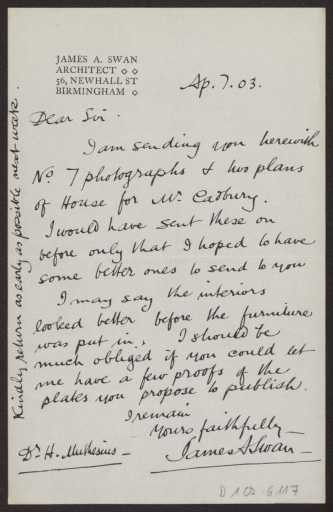 JAMES A. SWAN
ARCHITECT ◇ ◇
56, NEWHALL ST
BIRMINGHAM ◇
Ap. 7. 03.
Dear Sir.
I am sending you herewith
No 7 photographs & two plans
of House for Mr Cadbury.
I would have sent these on
before only that I hoped to have
some better ones to send to you
I may say the interiors
looked better before the furniture
was put in. I should be
much obliged if you could let
me have a few proofs of the
plates you propose to publish.
I remain
Yours faithfully
James A Swan
Dr H. Muthesius
Kindly return as early as possible next week.
D 102-6117